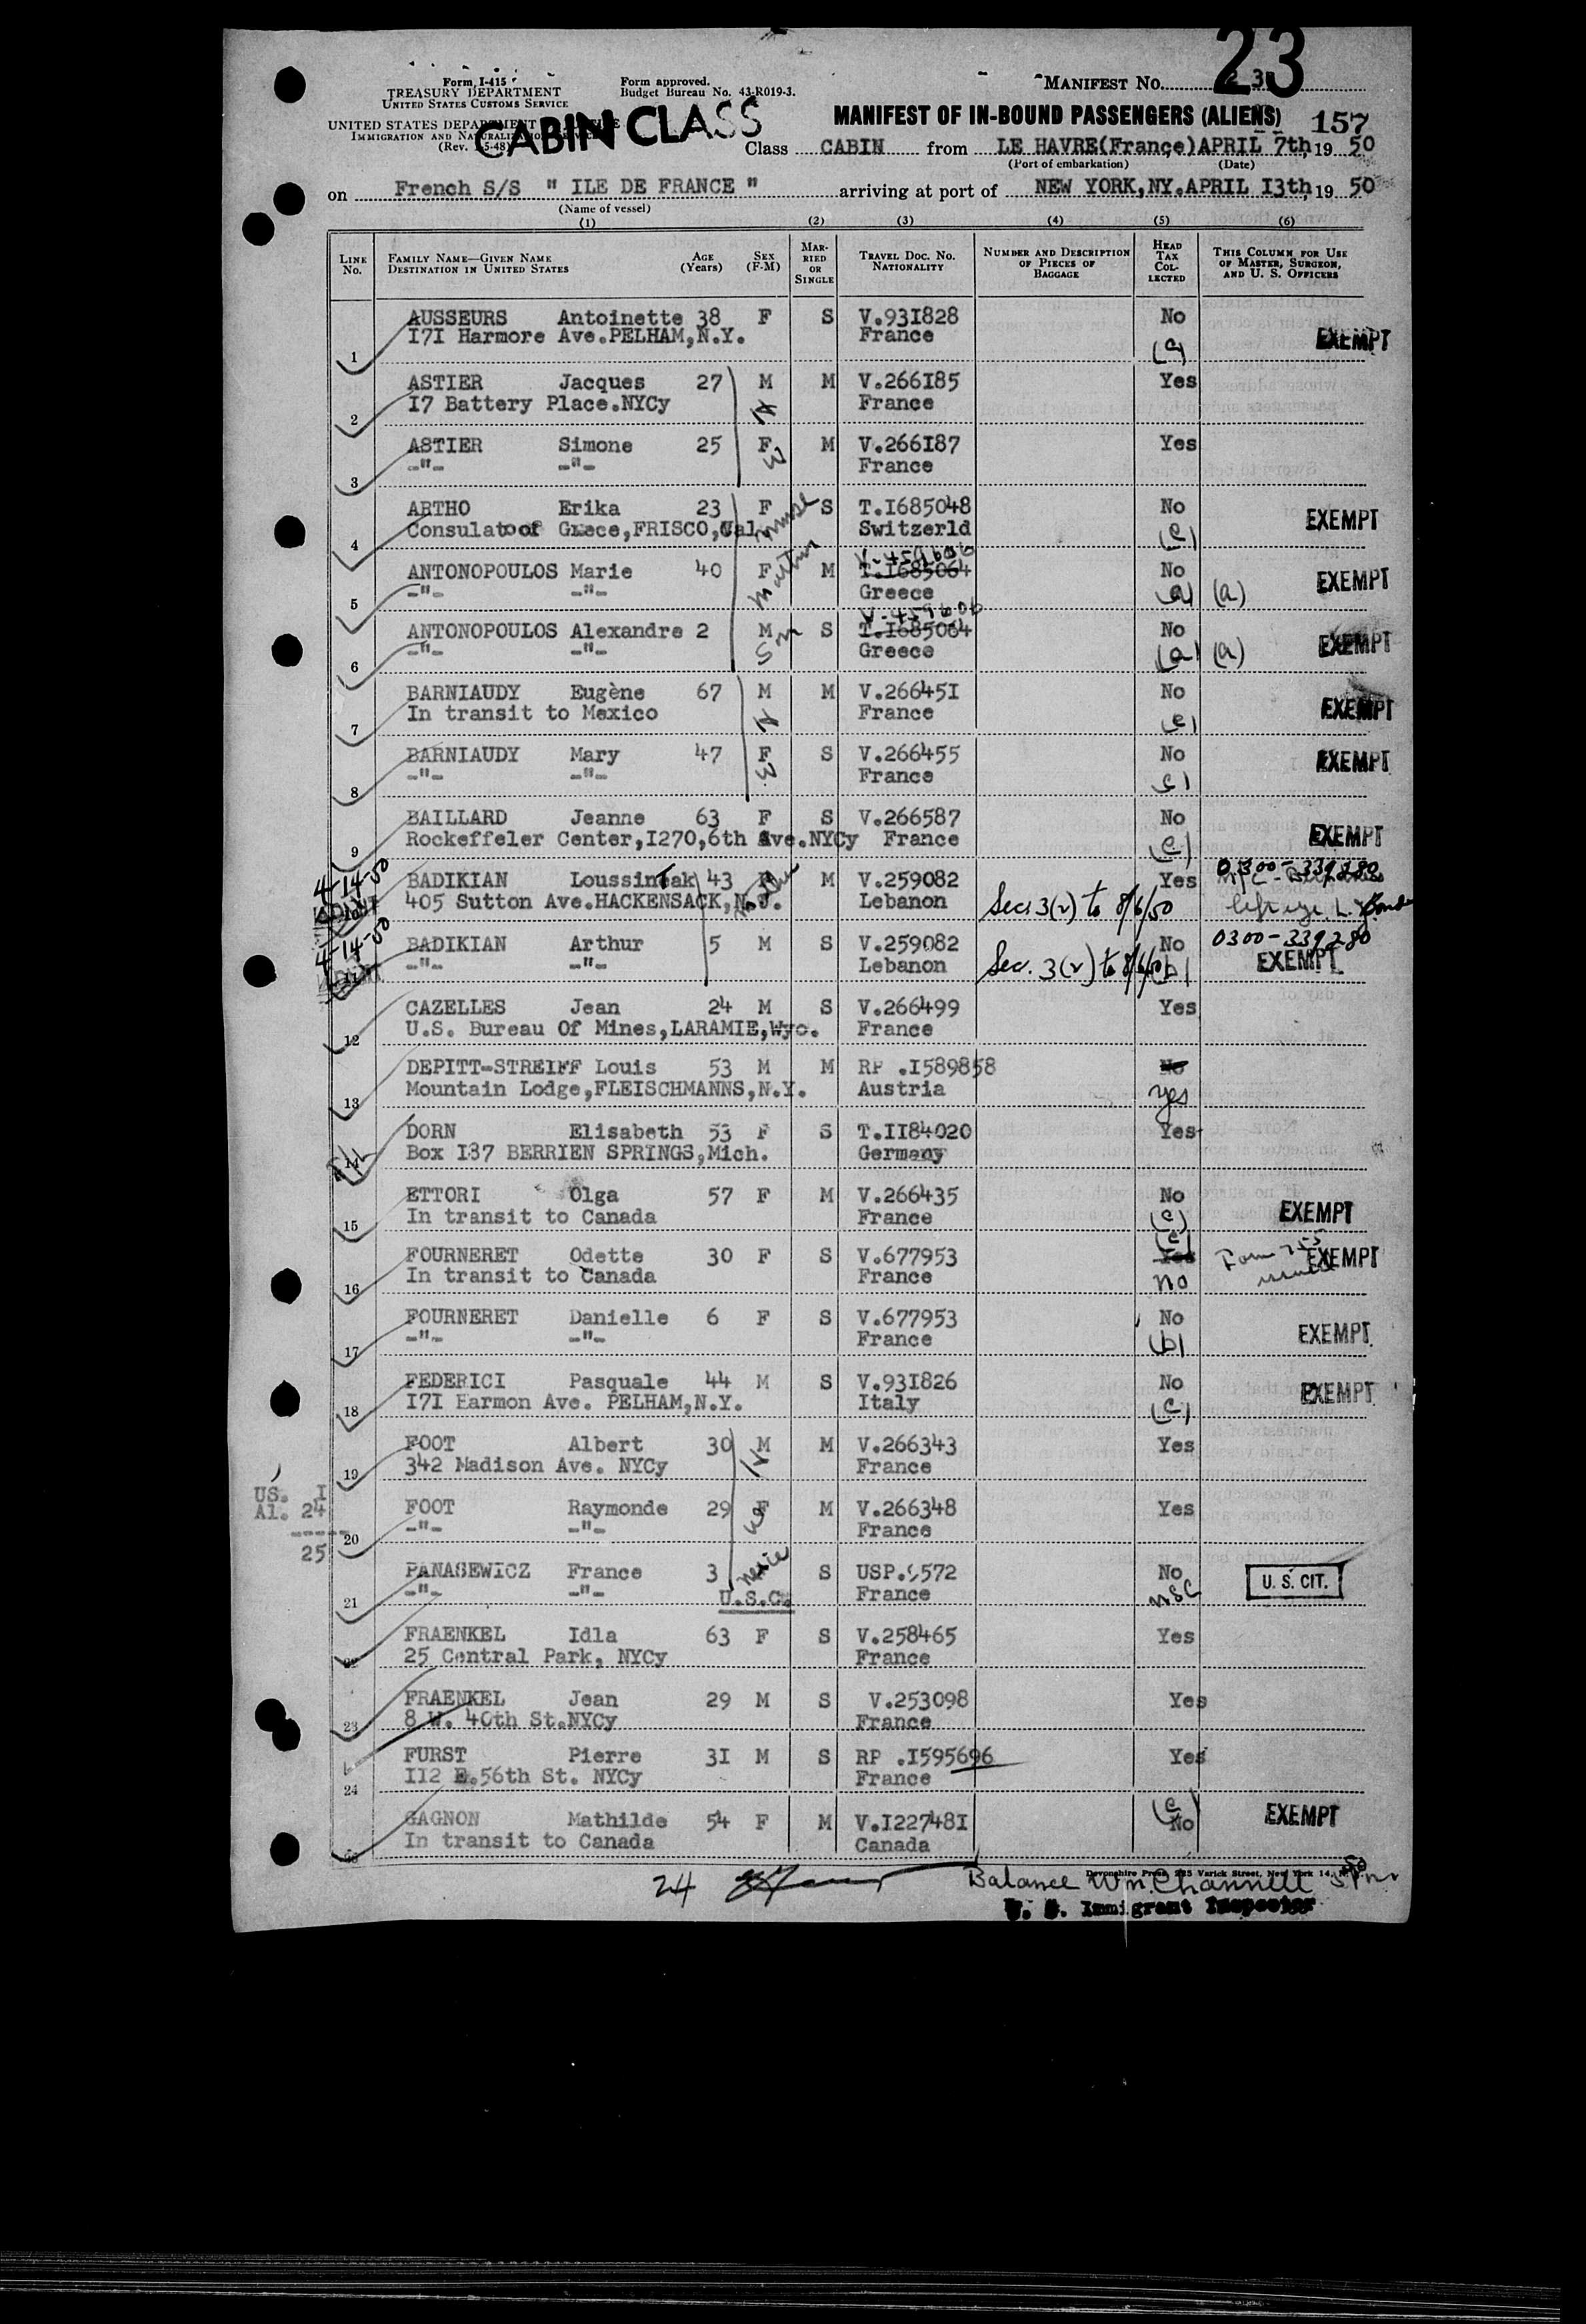 23
Form I-415
TREASURY DEPARTMENT
UNITED STATES CUSTOMS SERVICE
Form approved.
Budget Bureau No. 43-R019-3.
MANIFEST No. 23
UNITED STATES DEPARTMENT
IMMIGRATION AND NATURALIZATION SERVICE
(Rev. 5-48)
CABIN CLASS
MANIFEST OF IN-BOUND PASSENGERS (ALIENS) 157
Class CABIN from LE HAVRE(France) APRIL 7th, 19 50
(Port of embarkation) (Date)
on French S/S " ILE DE FRANCE " arriving at port of NEW YORK,NY. APRIL I3th, 19 50
(Name of vessel)
(1) (2) (3) (4) (5) (6)
LINE No. FAMILY NAME—GIVEN NAME DESTINATION IN UNITED STATES AGE (Years) SEX (F-M) MARRIED OR SINGLE TRAVEL DOC. NO. NATIONALITY NUMBER AND DESCRIPTION OF PIECES OF BAGGAGE HEAD TAX COLLECTED THIS COLUMN FOR USE OF MASTER, SURGEON, AND U. S. OFFICERS
AUSSEURS Antoinette 38 F S V.93I828 No
1 I7I Harmore Ave.PELHAM,N.Y. France EXEMPT
ASTIER Jacques 27 M M V.266I85 Yes
2 I7 Battery Place.NYCy France
ASTIER Simone 25 F M V.266I87 Yes
3 -"- -"- France
ARTHO Erika 23 F S T.I685048 No
4 Consulatoof Grece,FRISCO,Cal Switzerld (e) EXEMPT
V-459606
ANTONOPOULOS Marie 40 F M T.I685064 No
5 -"- -"- Greece (a) (a) EXEMPT
V-459606
ANTONOPOULOS Alexandre 2 M Son S T.I685064 No
6 -"- -"- Greece (a) (a) EXEMPT
BARNIAUDY Eugène 67 M M V.26645I No
7 In transit to Mexico France (e) EXEMPT
BARNIAUDY Mary 47 F S V.266455 No
8 -"- -"- France EXEMPT
BAILLARD Jeanne 63 F S V.266587 No
9 Rockeffeler Center,I270,6th Ave.NYCy France (e) EXEMPT
4-14-50 0300-339280
BADIKIAN Loussintak 43 M V.259082 Yes
405 Sutton Ave.HACKENSACK,N.J. Lebanon Sec. 3(2) to 8/6/50
4-14-50 0300-339280
BADIKIAN Arthur 5 M S V.259082 No
11 -"- -"- Lebanon Sec. 3(2) to 8/6/50 (b) EXEMPT
CAZELLES Jean 24 M S V.266499 Yes
12 U.S. Bureau Of Mines,LARAMIE,Wyo. France
DEPITT-STREIFF Louis 53 M M RP .I589858 No
13 Mountain Lodge,FLEISCHMANNS,N.Y. Austria yes
DORN Elisabeth 53 F S T.II84020 Yes
14 Box I37 BERRIEN SPRINGS,Mich. Germany
ETTORI Olga 57 F M V.266435 No
15 In transit to Canada France (e) EXEMPT
FOURNERET Odette 30 F S V.677953 (e) Yes
16 In transit to Canada France no EXEMPT
FOURNERET Danielle 6 F S V.677953 No
17 -"- -"- France (b) EXEMPT
FEDERICI Pasquale 44 M S V.93I826 No
18 I7I Harmon Ave. PELHAM,N.Y. Italy EXEMPT
FOOT Albert 30 M M V.266343 Yes
19 342 Madison Ave. NYCy France
US. I
Al. 24
25
FOOT Raymonde 29 F M V.266348 Yes
20 -"- -"- France
PANASEWICZ France 3 S No
21 -"- -"- U.S.C. France USC U. S. CIT.
FRAENKEL Idla 63 F S V.258465 Yes
25 Central Park, NYCy France
FRAENKEL Jean 29 M S V.253098 Yes
23 8 W. 40th St.NYCy France
FURST Pierre 3I M S RP .I595696 Yes
24 II2 E.56th St. NYCy France
GAGNON Mathilde 54 F M V.I22748I (e) No EXEMPT
In transit to Canada Canada
Devonshire Press, 225 Varick Street, New York 14, N.Y.
24 Balance Wm. Channell
U. S. Immigrant Inspector